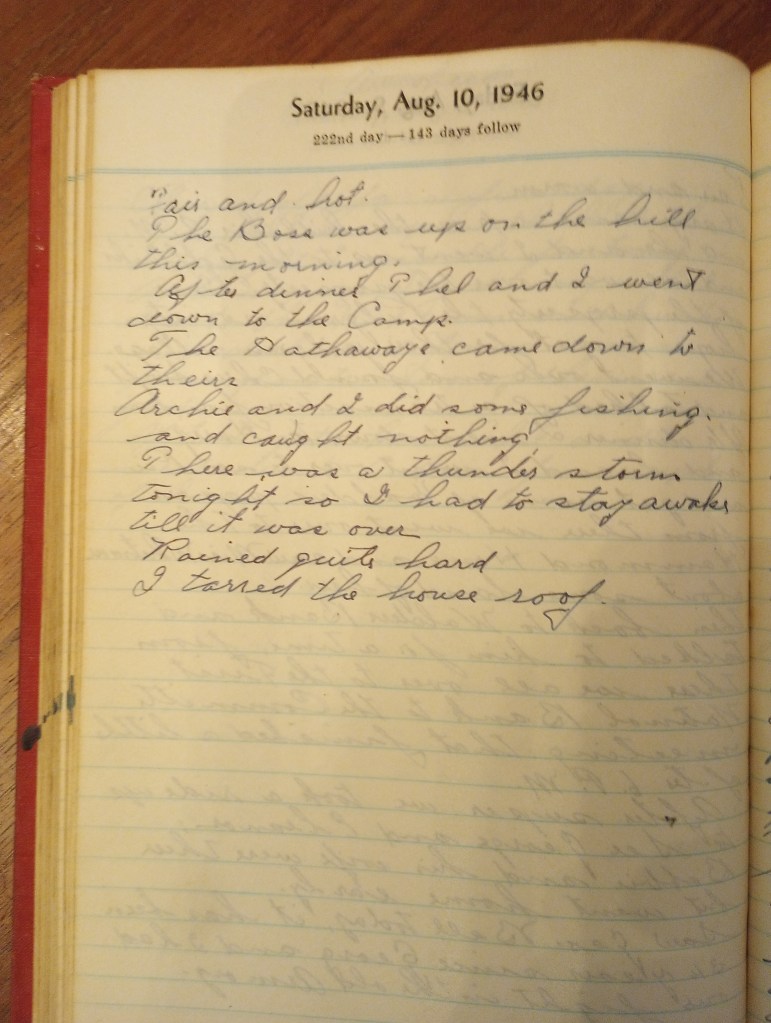 Saturday, Aug. 10, 1946
222nd day — 143 days follow
Fair and hot.
The Boss was up on the hill
this morning.
After dinner Thel and I went
down to the Camp.
The Hathaways came down to
theirs
Archie and I did some fishing.
and caught nothing
There was a thunder storm
tonight so I had to stay awake
till it was over
Rained quite hard
I tarred the house roof.